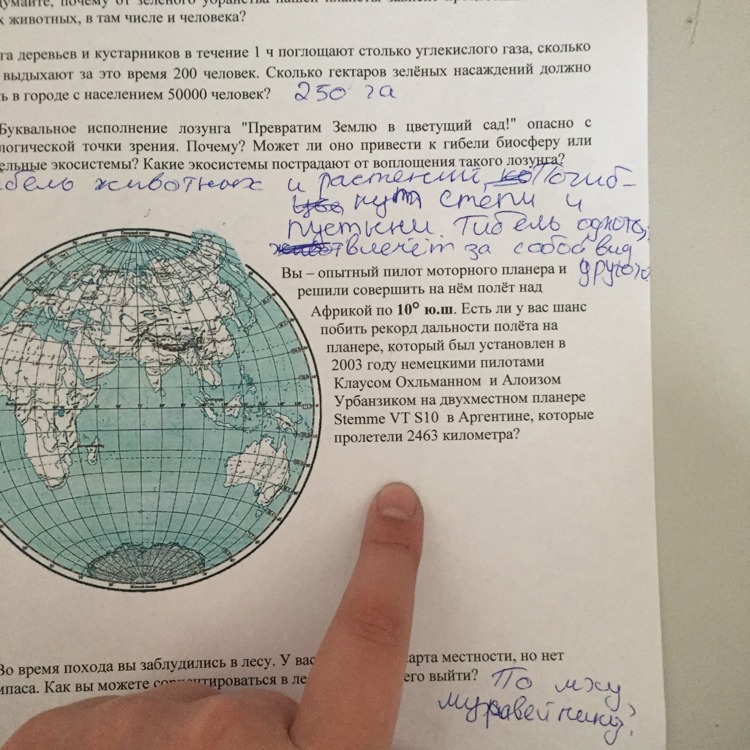 х животных, в там числе и человека?
га деревьев и кустарников в течение 1 ч поглощают столько углекислого газа, сколько
выдыхают за это время 200 человек. Сколько гектаров зелёных насаждений должно
ть в городе с населением 50000 человек? 250 га
Буквальное исполнение лозунга "Превратим Землю в цветущий сад!" опасно с
логической точки зрения. Почему? Может ли оно привести к гибели биосферу или
ельные экосистемы? Какие экосистемы пострадают от воплощения такого лозунга?
бель животных и растений, Погиб-
нут степи и
пустыни. Гибель одного,
влечёт за собой вид
другого
Вы – опытный пилот моторного планера и
решили совершить на нём полёт над
Африкой по 10° ю.ш. Есть ли у вас шанс
побить рекорд дальности полёта на
планере, который был установлен в
2003 году немецкими пилотами
Клаусом Охльманном и Алоизом
Урбанзиком на двухместном планере
Stemme VT S10 в Аргентине, которые
пролетели 2463 километра?
Во время похода вы заблудились в лесу. У вас арта местности, но нет
ипаса. Как вы можете сориентироваться в ле его выйти? По мху
муравейнику?